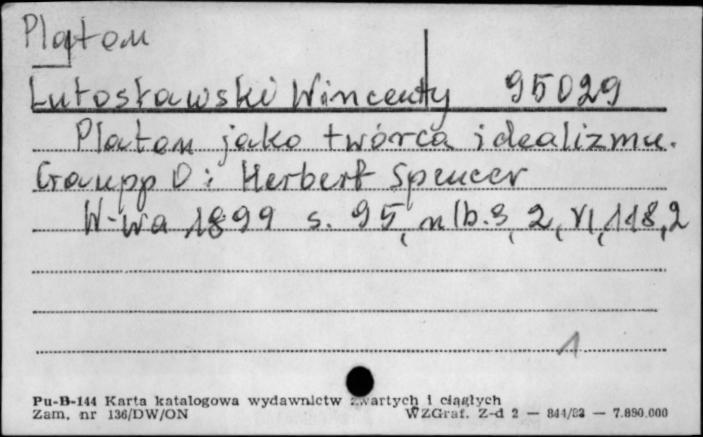 Platon
Lutosławski Wincenty 95029
Platon jako twórca idealizmu.
Gaupp O: Herbert Spencer
W-wa 1899 s. 95, nlb. 3, 2, VI, 118, 2
1
Pu-B-144 Karta katalogowa wydawnictw zwartych i ciągłych
Zam. nr 136/DW/ON WZGraf. Z-d 2 — 844/82 — 7.890.000